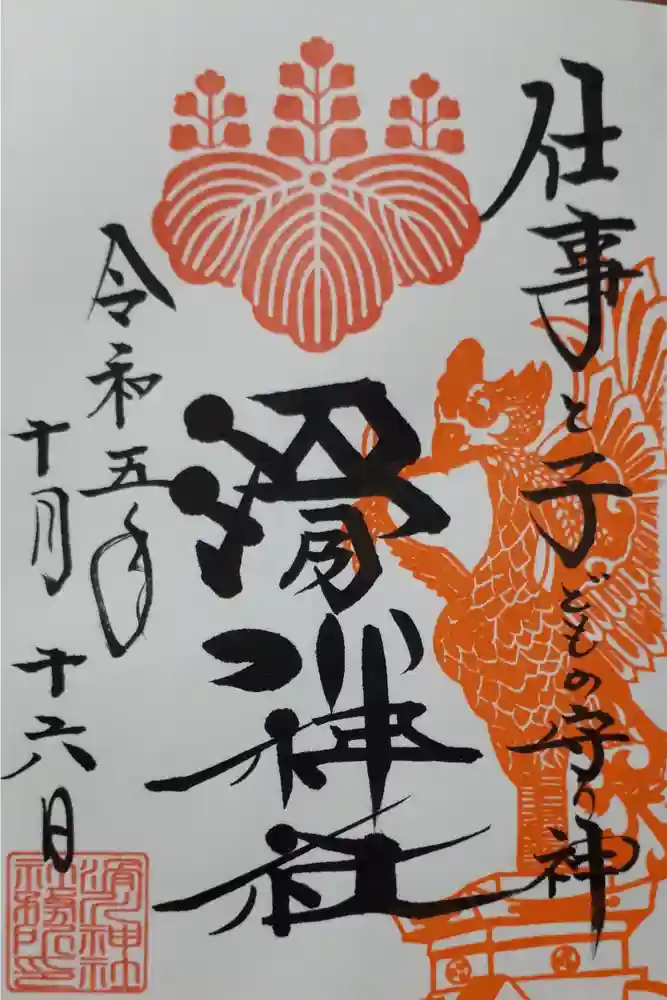 仕事と子どもの守り神
滑川神社
令和五年
十月十六日
滑川神社
社務所印